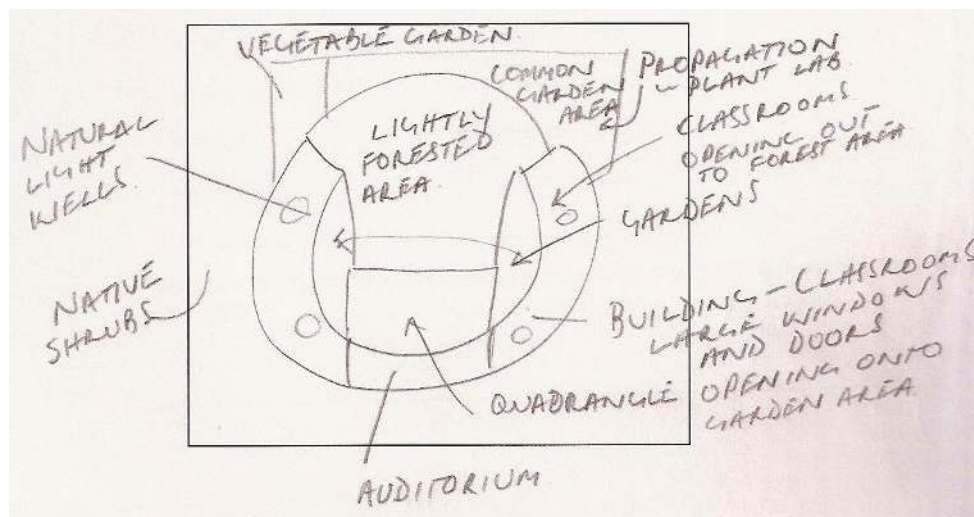 VEGETABLE GARDEN.
COMMON
GARDEN
AREA
PROPAGATION
PLANT LAB
CLASSROOMS
OPENING OUT
TO FOREST AREA
LIGHTLY
FORESTED
AREA.
NATURAL
LIGHT
WELLS.
GARDENS
NATIVE
SHRUBS
BUILDING - CLASSROOMS
LARGE WINDOWS
AND DOORS
OPENING ONTO
GARDEN AREA
QUADRANGLE
AUDITORIUM